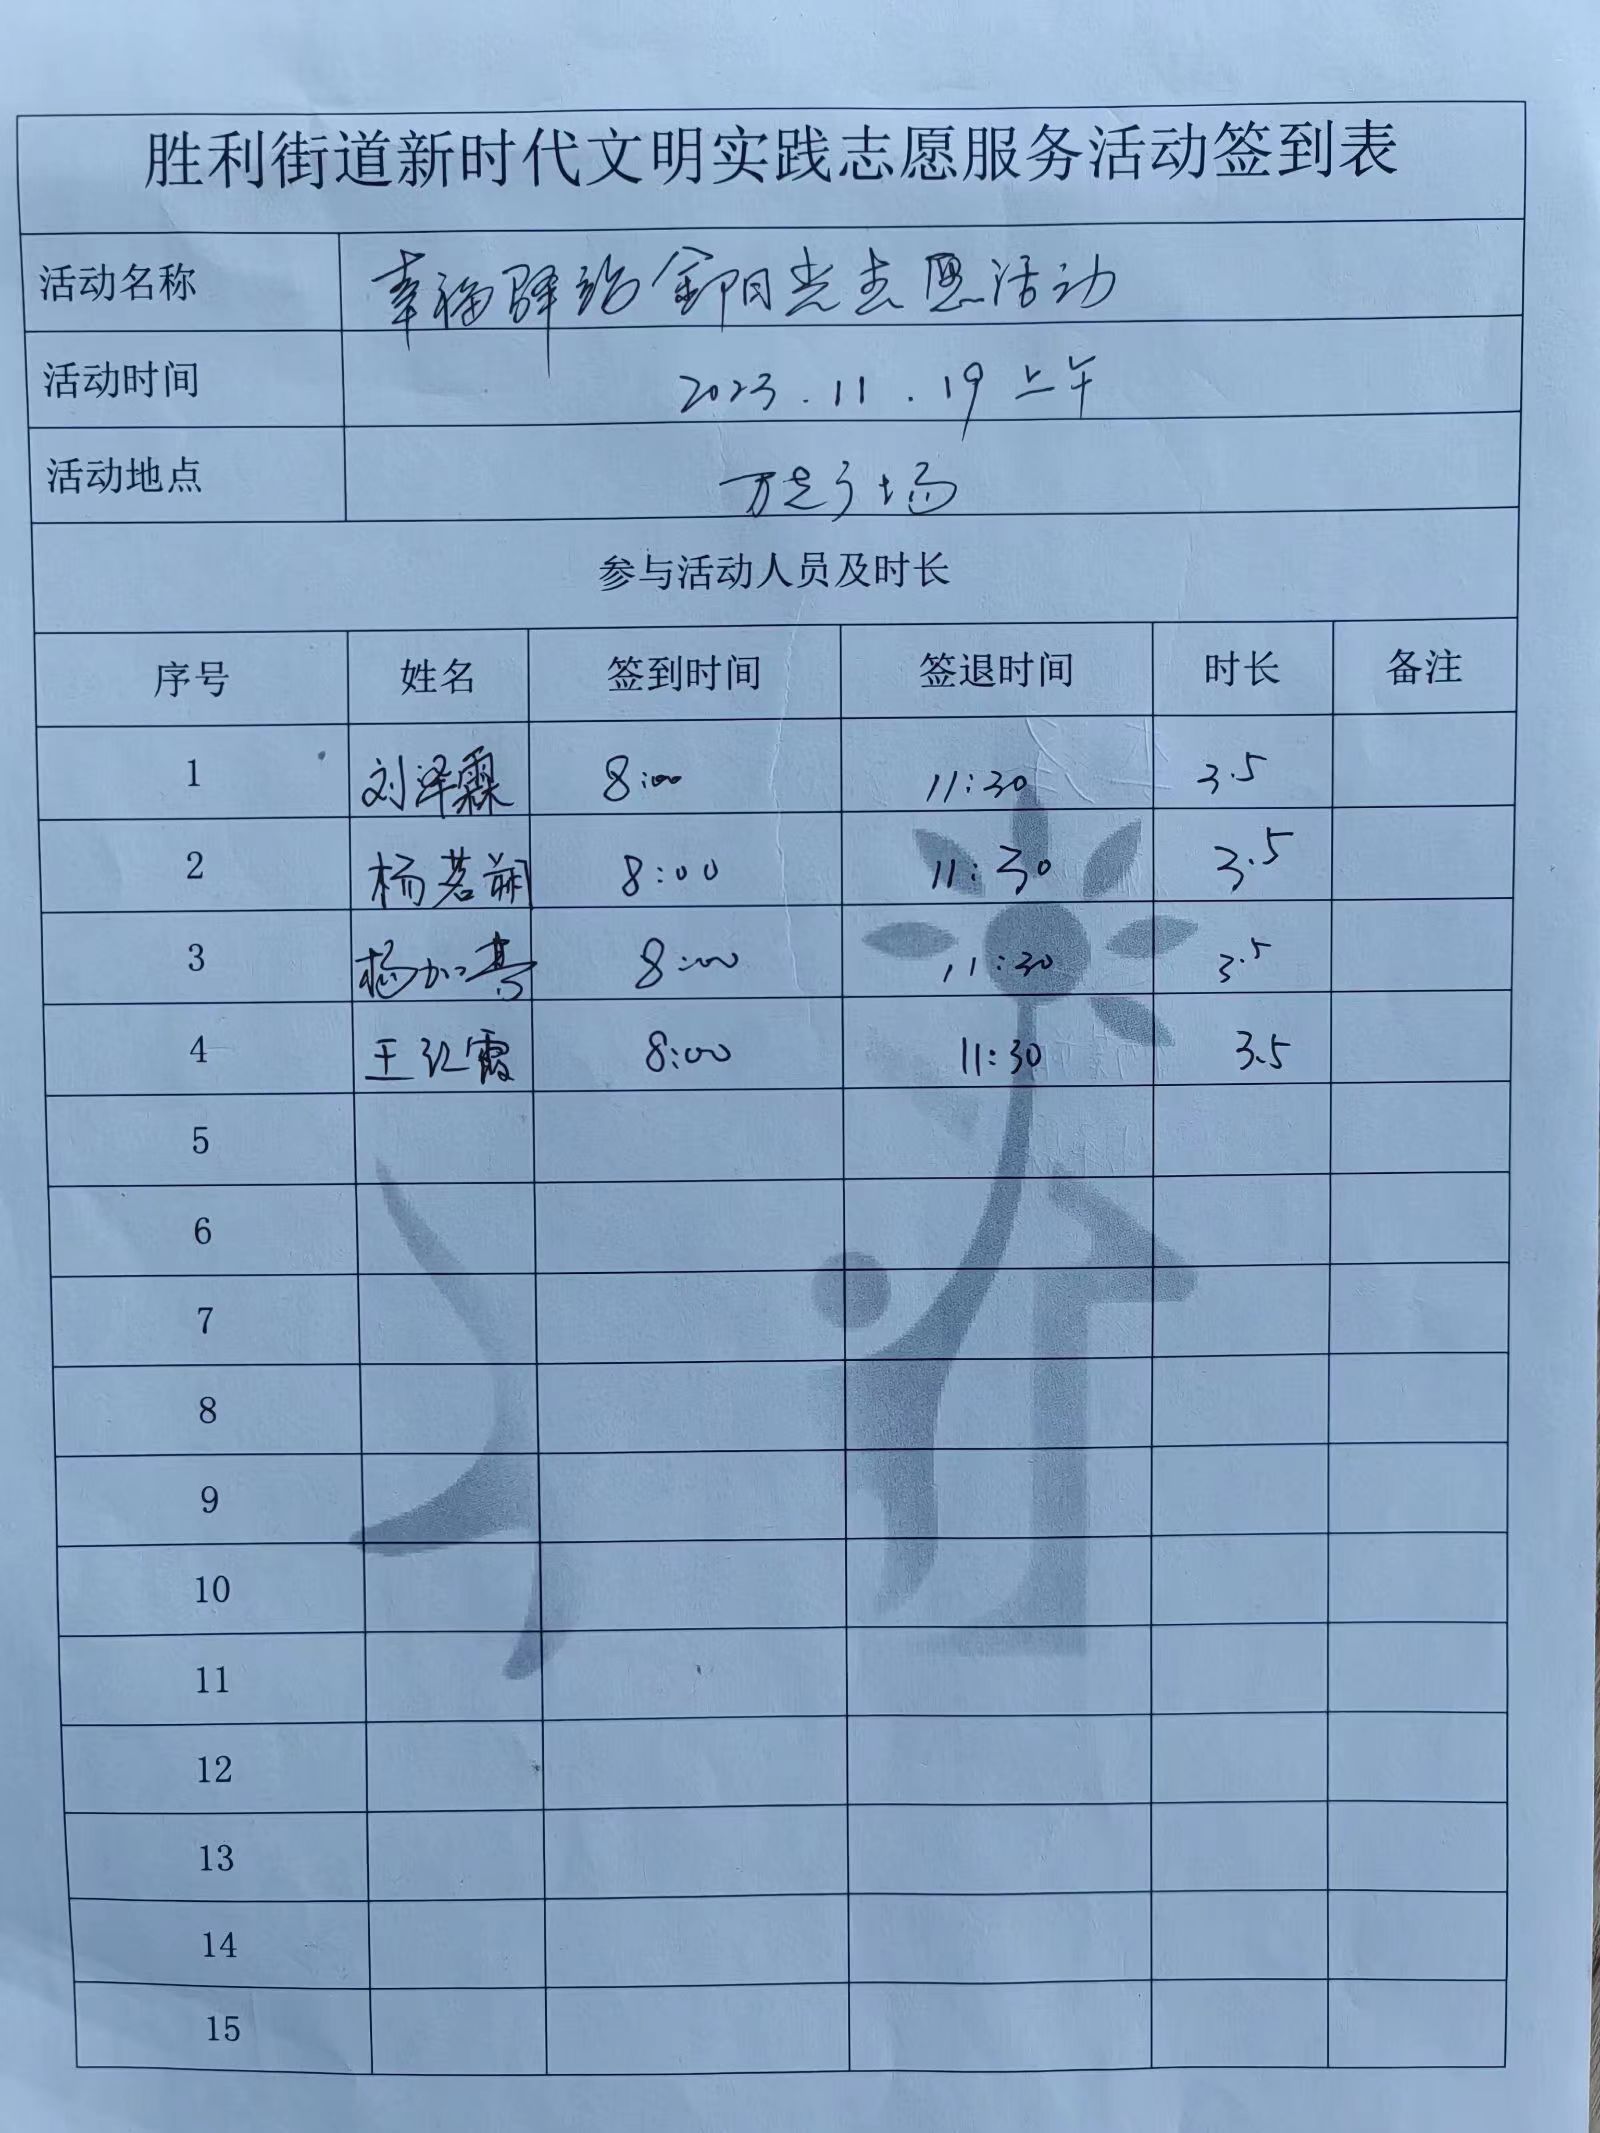 胜利街道新时代文明实践志愿服务活动签到表
活动名称 幸福驿站金阳光志愿活动
活动时间 2023.11.19上午
活动地点 万达广场
参与活动人员及时长
序号 姓名 签到时间 签退时间 时长 备注
1 刘泽霖 8:00 11:30 3.5
2 杨茗 8:00 11:30 3.5
3 杨加 8:00 11:30 3.5
4 王红霞 8:00 11:30 3.5
5
6
7
8
9
10
11
12
13
14
15